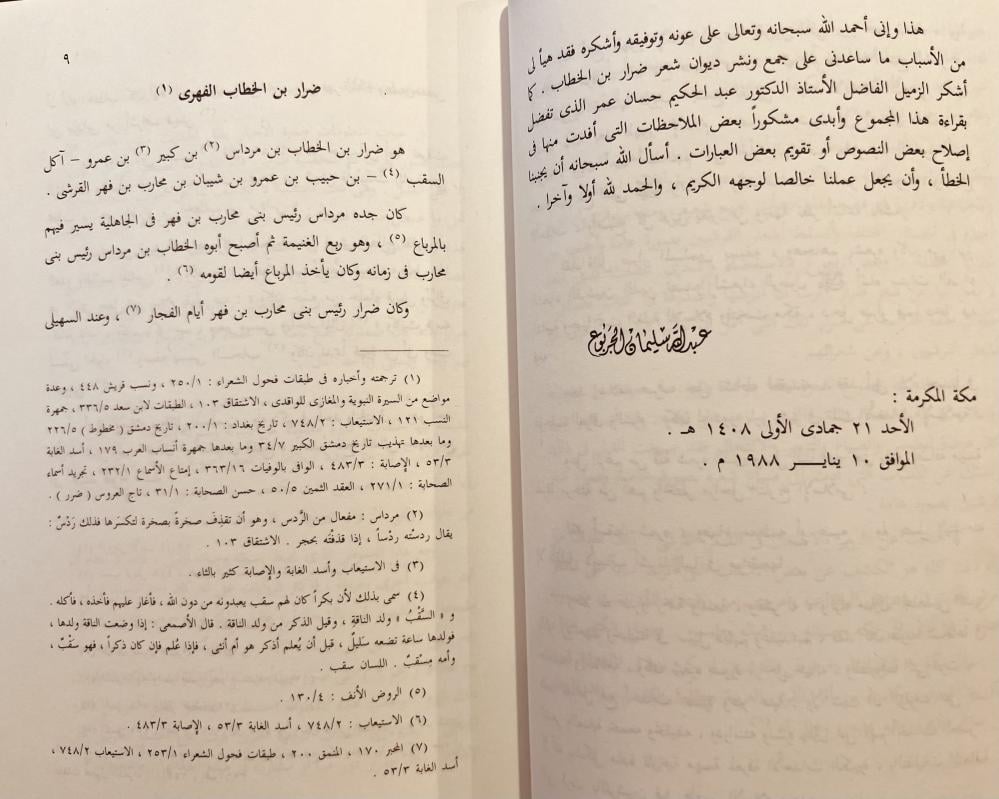 هذا وإنى أحمد الله سبحانه وتعالى على عونه وتوفيقه وأشكره فقد هيأ لى
من الأسباب ما ساعدنى على جمع ونشر ديوان شعر ضرار بن الخطاب . كما
أشكر الزميل الفاضل الأستاذ الدكتور عبد الحكيم حسان عمر الذى تفضل
بقراءة هذا المجموع وأبدى مشكوراً بعض الملاحظات التى أفدت منها فى
إصلاح بعض النصوص أو تقويم بعض العبارات . أسأل الله سبحانه أن يجنبنا
الخطأ ، وأن يجعل عملنا خالصا لوجهه الكريم ، والحمد لله أولا وآخرا .
عبدالله سليمان الجربوع
مكة المكرمة :
الأحد ٢١ جمادى الأولى ١٤٠٨ هـ .
الموافق ١٠ ينايـــر ١٩٨٨ م .
٩
ضرار بن الخطاب الفهرى (١)
هو ضرار بن الخطاب بن مرداس (٢) بن كبير (٣) بن عمرو – آكل
السقب (٤) – بن حبيب بن عمرو بن شيبان بن محارب بن فهر القرشى .
كان جده مرداس رئيس بنى محارب بن فهر فى الجاهلية يسير فيهم
بالمرباع (٥) ، وهو ربع الغنيمة ثم أصبح أبوه الخطاب بن مرداس رئيس بنى
محارب فى زمانه وكان يأخذ المرباع أيضا لقومه (٦) .
وكان ضرار رئيس بنى محارب بن فهر أيام الفجار (٧) ، وعند السهيلى
(١) ترجمته وأخباره فى طبقات فحول الشعراء : ٢٥٠/١ ، ونسب قريش ٤٤٨ ، وعدة
مواضع من السيرة النبوية والمغازى للواقدى ، الاشتقاق ١٠٣ ، الطبقات لابن سعد ٣٣٦/٥ ، جمهرة
النسب ١٢١ ، الاستيعاب : ٧٤٨/٢ ، تاريخ بغداد : ٢٠٠/١ ، تاريخ دمشق ( مخطوط ) ٢٢٦/٥
وما بعدها تهذيب تاريخ دمشق الكبير ٣٤/٧ وما بعدها جمهرة أنساب العرب ١٧٩ ، أسد الغابة
٥٣/٣ ، الإصابة : ٤٨٣/٣ ، الوافى بالوفيات ٣٦٣/١٦ ، إمتاع الأسماع ٢٣٢/١ ، تجريد أسماء
الصحابة : ٢٧١/١ ، العقد الثمين ٥٠/٥ ، حسن الصحابة : ٣١/١ ، تاج العروس ( ضرر ) .
(٢) مرداس : مفعال من الرَّدس ، وهو أن تقذِفَ صخرةً بصخرة لتكسرَها فذلك رَدْسٌ :
يقال ردسْته ردْساً ، إذا قذفْته بحجر . الاشتقاق ١٠٣ .
(٣) فى الاستيعاب وأسد الغابة والإصابة كثير بالثاء .
(٤) سمى بذلك لأن بكراً كان لهم سقب يعبدونه من دون الله ، فأغار عليهم فأخذه ، فأكله .
و « السَّقْبُ » ولد الناقة ، وقيل الذكر من ولد الناقة . قال الأصمعى : إذا وضعت الناقة ولدها ،
فولدها ساعة تضعه سَليلٌ ، قبل أن يُعلم أذكر هو أم أنثى ، فإذا عُلم فإن كان ذكراً ، فهو سَقْبٌ ،
وأمه مِسْقبٌ . اللسان سقب .
(٥) الروض الأنف : ١٣٠/٤ .
(٦) الاستيعاب : ٧٤٨/٢ ، أسد الغابة ٥٣/٣ ، الإصابة ٤٨٣/٣ .
(٧) المحبر ١٧٠ ، المنمق ٢٠٠ ، طبقات فحول الشعراء ٢٥٣/١ ، الاستيعاب ٧٤٨/٢ ،
أسد الغابة ٥٣/٣ .